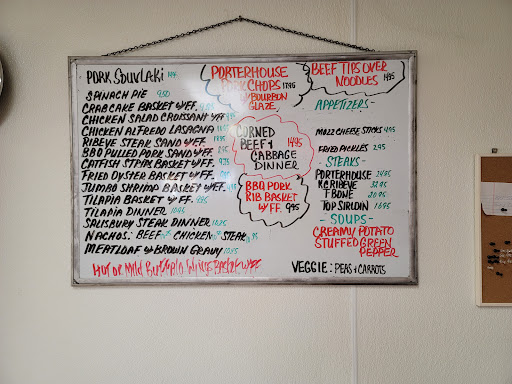 PORK SOUVLAKI
SPINACH PIE 9.50
CRAB CAKE BASKET W/FF
CHICKEN SALAD CROISSANT W/FF
CHICKEN ALFREDO LASAGNA
RIBEYE STEAK SAND W/FF
BBQ PULLED PORK SAND W/FF
CATFISH STRIPS BASKET W/FF
FRIED OYSTER BASKET W/FF
JUMBO SHRIMP BASKET W/FF
TILAPIA BASKET W/ FF
TILAPIA DINNER 10.95
SALISBURY STEAK DINNER 10.95
NACHOS: BEEF CHICKEN STEAK
MEATLOAF W/ BROWN GRAVY 10.95
HOT OR MILD BUFFALO WINGS BASKET W/FF
PORTERHOUSE
PORK CHOPS 17.95
W/ BOURBON
GLAZE
CORNED
BEEF & 14.95
CABBAGE
DINNER
BBQ PORK
RIB BASKET
W/ FF 9.95
BEEF TIPS OVER
NOODLES 14.95
APPETIZERS -
MOZZ CHEESE STICKS 4.95
FRIED PICKLES 2.95
- STEAKS -
PORTERHOUSE
KC RIBEYE
T BONE 20.95
TOP SIRLOIN 16.95
- SOUPS -
CREAMY POTATO
STUFFED GREEN
PEPPER
VEGGIE: PEAS & CARROTS